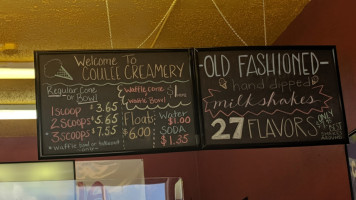 Welcome To
COULEE CREAMERY
Regular Cone
or Bowl
1 SCOOP $3.65
2 SCOOPS $5.65
3 SCOOPS $7.55
Waffle Cone
Waffle Bowl
Floats
$6.00
Water
$1.00
SODA
$1.25
-OLD FASHIONED-
hand dipped
milkshakes
ONLY
27 FLAVORS